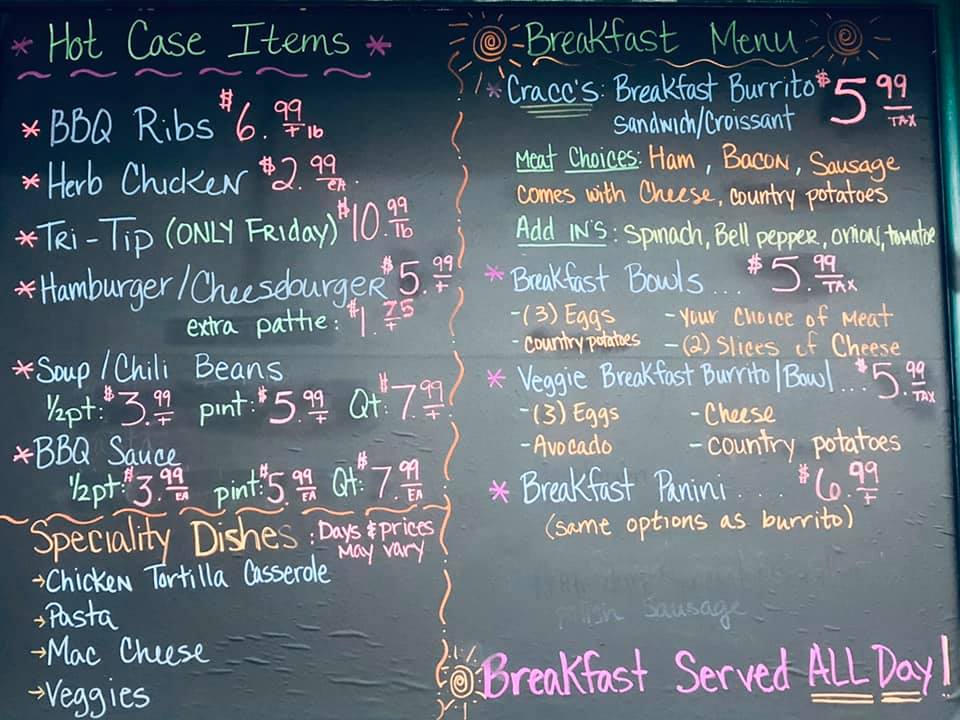 * Hot Case Items *
* BBQ Ribs $6.99 + lb
* Herb Chicken $2.99 ea.
* Tri-Tip (ONLY Friday) $10.99 lb
* Hamburger/Cheeseburger $5.99 +
extra pattie: $1.75 +
* Soup/Chili Beans
1/2pt: $3.99 + pint: $5.99 + Qt: $7.99 +
* BBQ Sauce
1/2pt: $3.99 EA pint: $5.99 EA Qt: $7.99 EA
Speciality Dishes: Days & prices
May vary
→Chicken Tortilla Casserole
→Pasta
→Mac Cheese
→Veggies
Breakfast Menu
* Cracc's: Breakfast Burrito $5.99 + TAX
Sandwich/Croissant
Meat Choices: Ham, Bacon, Sausage
comes with Cheese, country potatoes
Add IN's: Spinach, Bell pepper, onion, tomatoe
* Breakfast Bowls... $5.99 TAX
-(3) Eggs -Your Choice of Meat
- country potatoes -(2) Slices of Cheese
* Veggie Breakfast Burrito/Bowl... $5.99 TAX
-(3) Eggs - Cheese
-Avocado - country potatoes
* Breakfast Panini.... $6.99 +
(same options as burrito)
Sausage
Breakfast Served ALL Day!